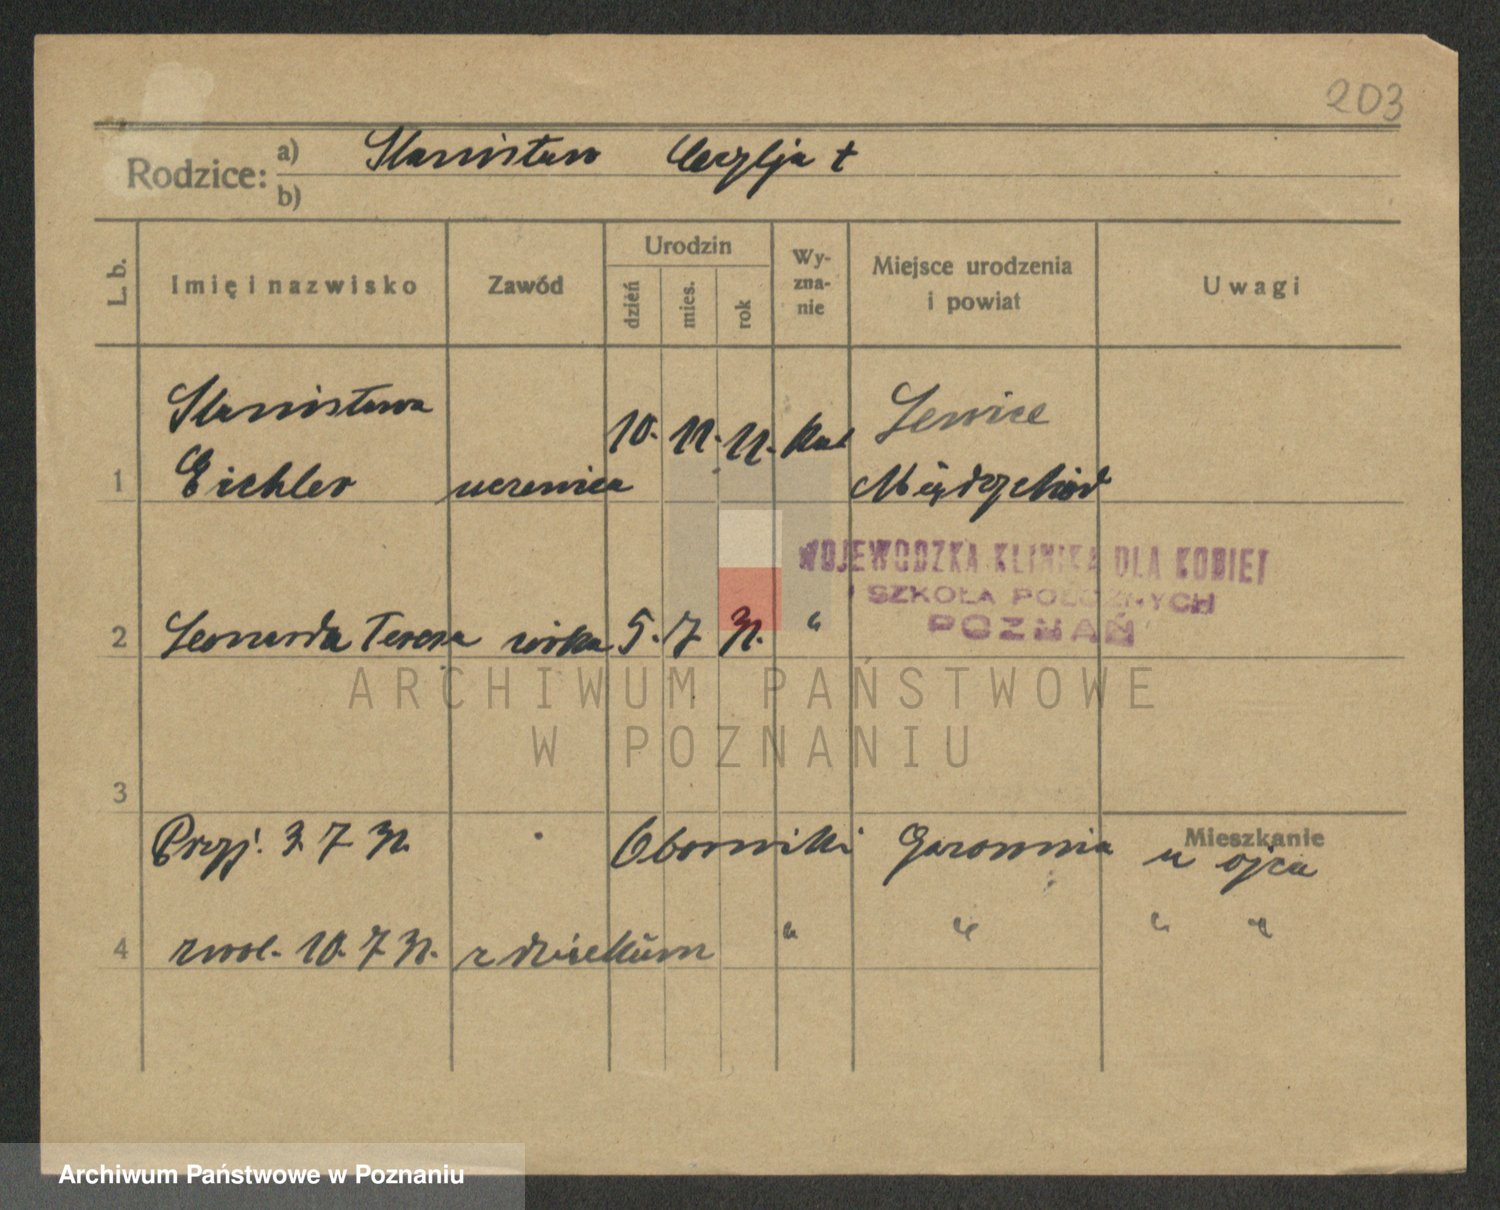 203
Rodzice: a) Stanisław Cecylja †
b)
L. b. Imię i nazwisko Zawód Urodzin dzień mies. rok Wy-zna-nie Miejsce urodzenia i powiat Uwagi
Stanisława 10. 11. 11. kat Lewice
1 Eichler uczenica Międzychód
WOJEWODZKA KLINIKA DLA KOBIET
I SZKOŁA POŁOŻNYCH
POZNAŃ
2 Leonarda Teresa córka 5. 7. 31. "
ARCHIWUM PAŃSTWOWE
W POZNANIU
3
Mieszkanie
Przyj. 3. 7 31. Oborniki u ojca
4 zwol. 10. 7 31. z dzieckiem " " " "
Archiwum Państwowe w Poznaniu